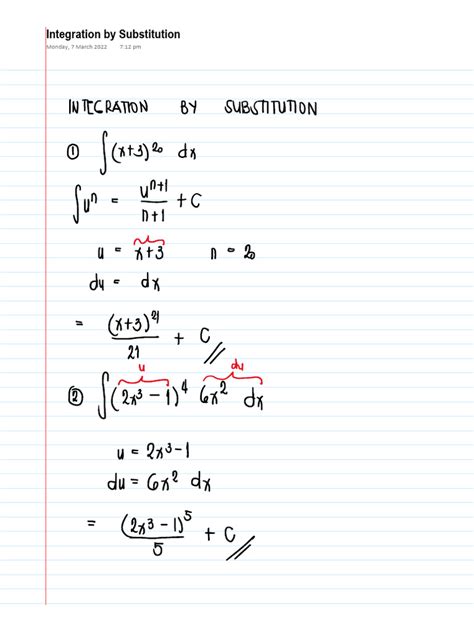 Integration by Substitution
Monday, 7 March 2022 7:12 pm
INTEGRATION BY SUBSTITUTION
① ∫(x+3)²⁰ dx
∫uⁿ = uⁿ⁺¹/n+1 + C
u = x+3 n = 20
du = dx
= (x+3)²¹/21 + C
u du
② ∫(2x³ − 1)⁴ 6x² dx
u = 2x³−1
du = 6x² dx
= (2x³ − 1)⁵/5 + C